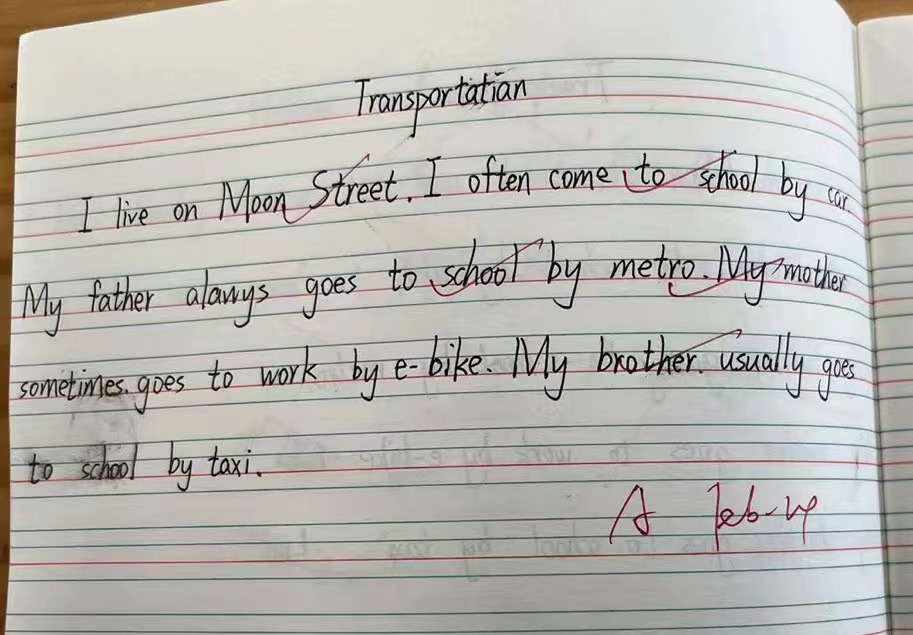 Transportatian
I live on Moon Street. I often come to school by car
My father alawys goes to school by metro. My mother
sometimes goes to work by e-bike. My brother usually goes
to school by taxi.
A